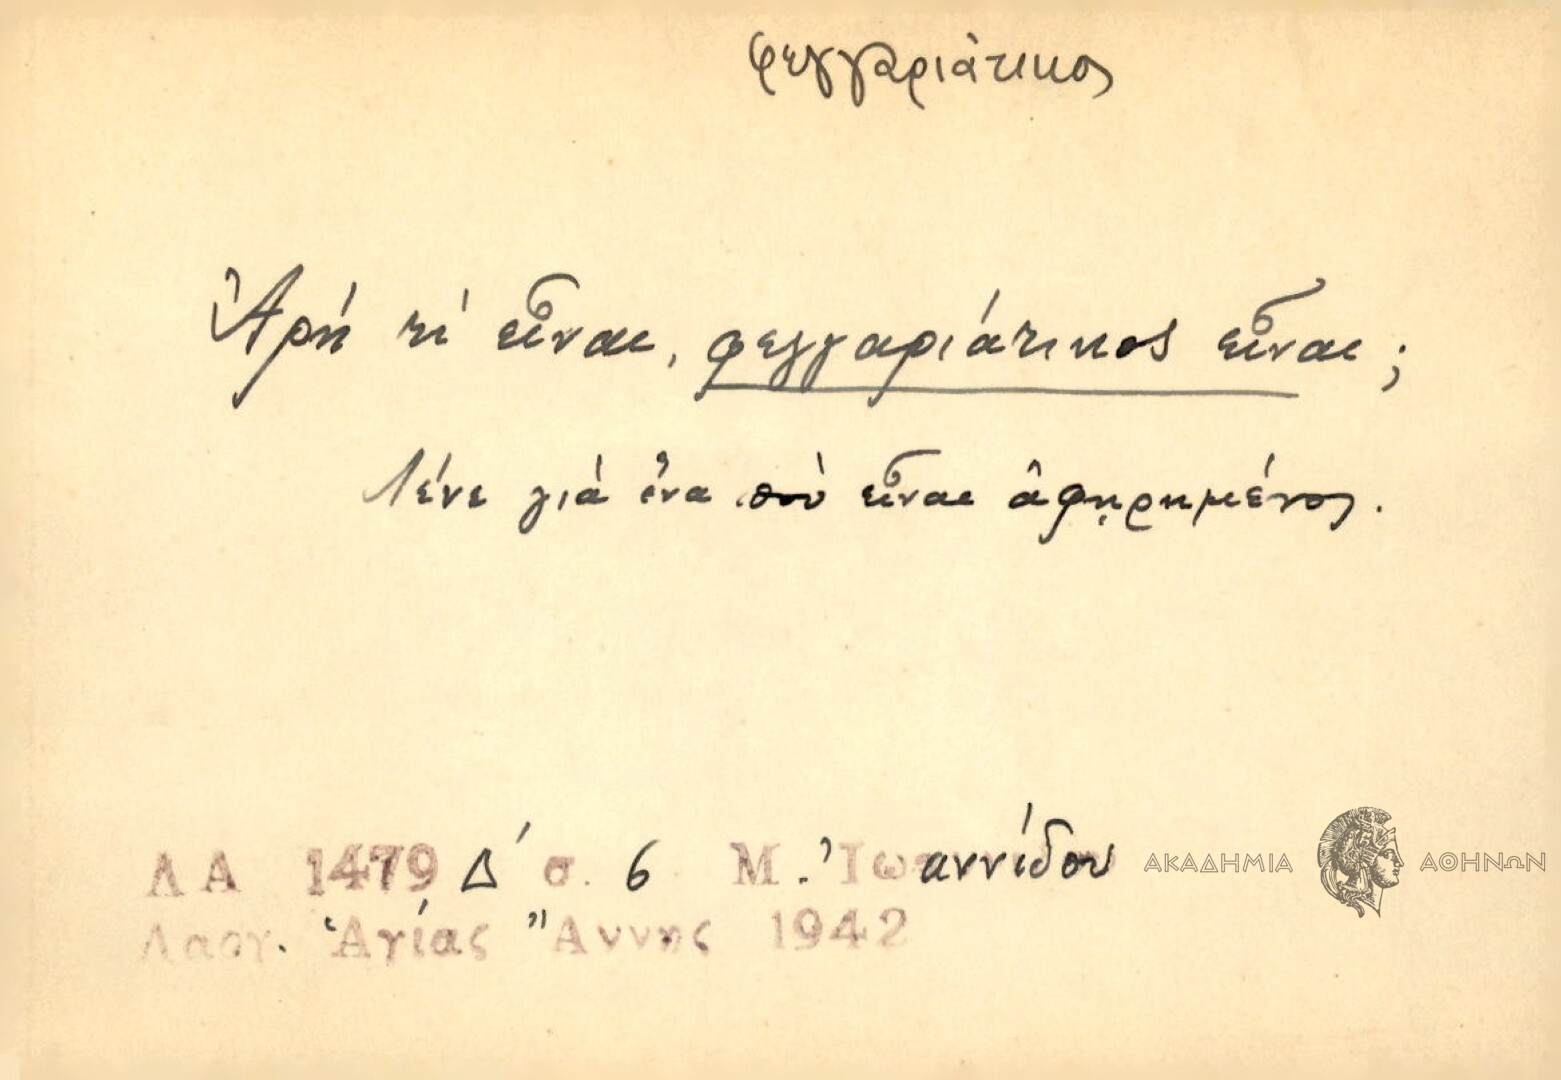 φεγγαριάτικος
Ἀρή τί εἶναι, φεγγαριάτικος εἶναι;
Λένε γιά ἕνα πού εἶναι ἀφῃρημένος.
ΛΑ 1479 Δ΄ σ. 6 Μ. Ἰωαννίδου
Λαογ. Ἁγίας Ἄννης 1942
ΑΚΑΔΗΜΙΑ ΑΘΗΝΩΝ